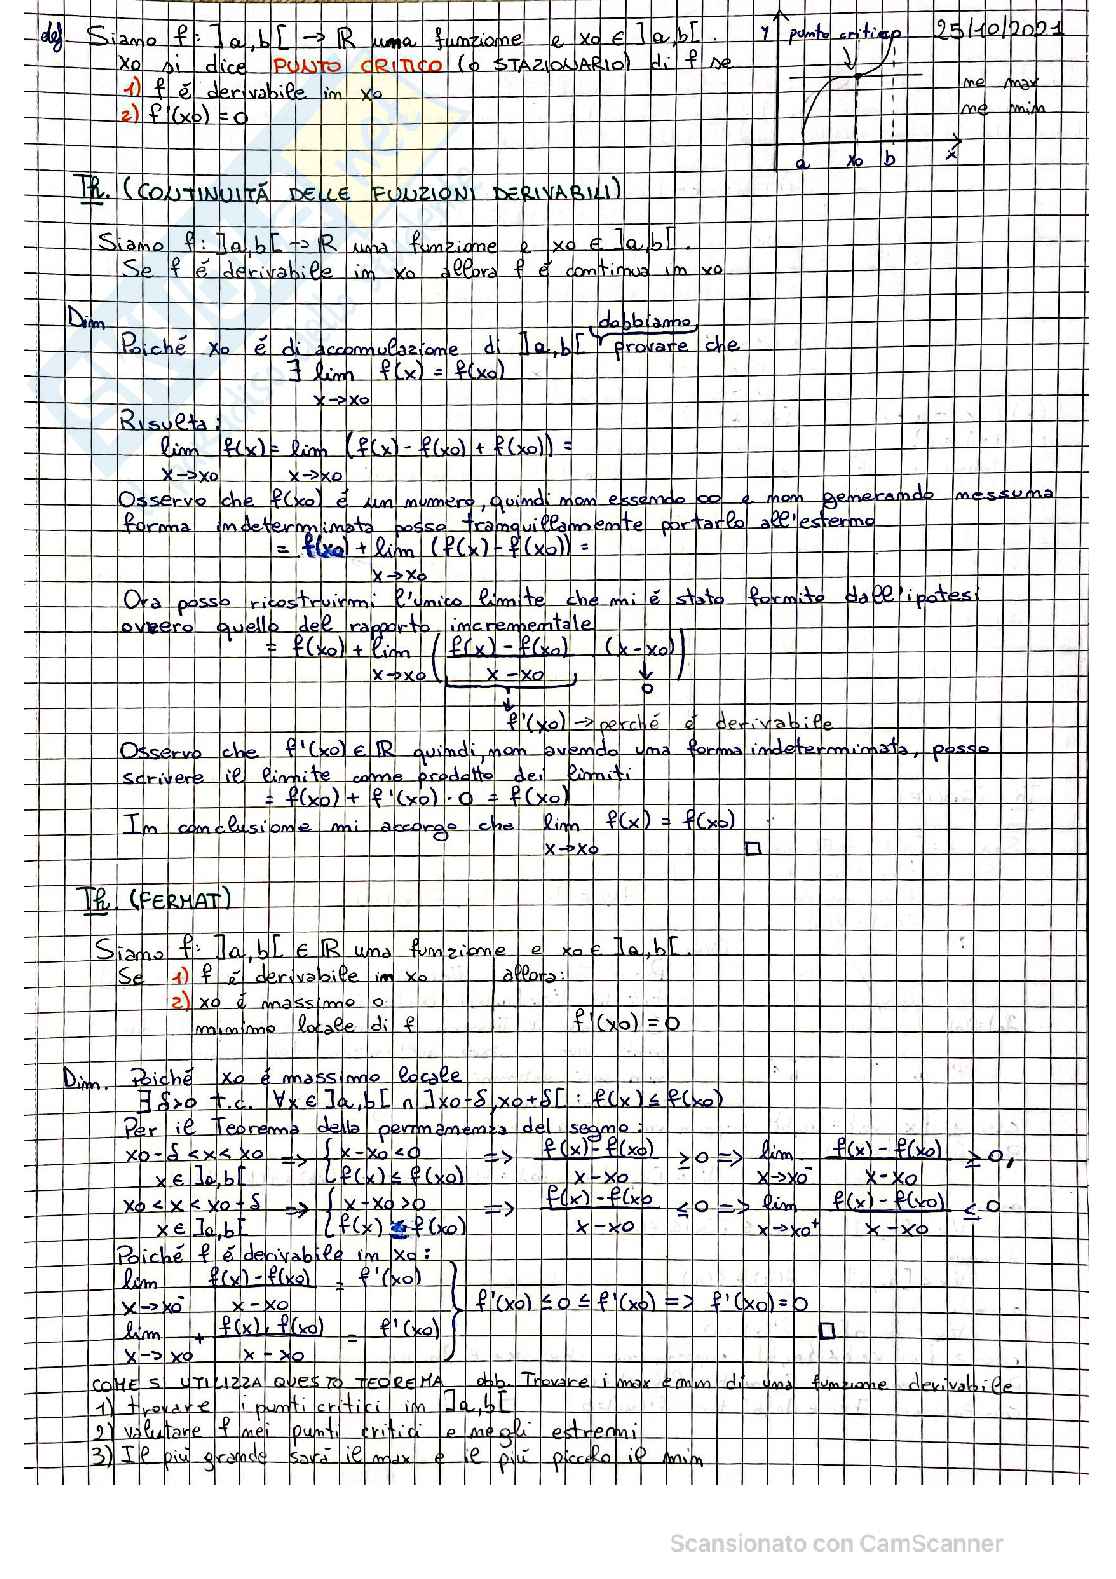 def Siano f: ]a,b[ → ℝ una funzione e xo ∈ ]a,b[.
xo si dice PUNTO CRITICO (o STAZIONARIO) di f se
1) f é derivabile in xo
2) f'(xo) = 0
y punto critico 25/10/2021
ne max
ne min
a xo b x
Th. (CONTINUITÁ DELLE FUNZIONI DERIVABILI)
Siano f: ]a,b[ → ℝ una funzione e xo ∈ ]a,b[.
Se f é derivabile in xo allora f é continua in xo
Dim
dobbiamo
Poiché xo é di accomulazione di ]a,b[ provare che
∃ lim f(x) = f(xo)
x→xo
Risulta:
lim f(x) = lim (f(x) - f(xo) + f(xo)) =
x→xo x→xo
Osservo che f(xo) é un numero, quindi non essendo ∞ e non generando nessuna
forma indeterminata posso tranquillamente portarlo all'esterno
= f(xo) + lim (f(x) - f(xo)) =
x→xo
Ora posso ricostruirmi l'unico limite che mi é stato fornito dall'ipotesi
ovvero quello del rapporto incrementale
= f(xo) + lim ( f(x) - f(xo) (x - xo) )
x→xo x - xo ↓
0
f'(xo) → perché é derivabile
Osservo che f'(xo) ∈ ℝ quindi, non avendo una forma indeterminata, posso
scrivere il limite come prodotto dei limiti
= f(xo) + f'(xo) · 0 = f(xo)
In conclusione mi accorgo che lim f(x) = f(xo)
x→xo □
Th. (FERMAT)
Siano f: ]a,b[ ∈ ℝ una funzione e xo ∈ ]a,b[.
Se 1) f é derivabile in xo allora:
2) xo é massimo o
minimo locale di f f'(xo) = 0
Dim. Poiché xo é massimo locale
∃ δ>0 t.c. ∀x ∈ ]a,b[ ∩ ]xo-δ, xo+δ[ : f(x) ≤ f(xo)
Per il Teorema della permanenza del segno:
xo-δ < x < xo => { x-xo < 0 => f(x) - f(xo) ≥ 0 => lim f(x) - f(xo) ≥ 0,
x ∈ ]a,b[ f(x) ≤ f(xo) x - xo x→xo⁻ x - xo
xo < x < xo+δ => { x-xo > 0 => f(x) - f(xo ≤ 0 => lim f(x) - f(xo) ≤ 0
x ∈ ]a,b[ f(x) ≤ f(xo) x - xo x→xo⁺ x - xo
Poiché f é derivabile in xo:
lim f(x) - f(xo) = f'(xo)
x→xo⁻ x - xo
f'(xo) ≤ 0 ≤ f'(xo) => f'(xo) = 0
lim + f(x), f(xo) = f'(xo) □
x→xo x - xo
COME S UTILIZZA QUESTO TEOREMA obb. Trovare i max e min di una funzione derivabile
1) trovare i punti critici in ]a,b[
2) valutare f nei punti critici e negli estremi
3) Il più grande sará il max e il più piccolo il min
Scansionato con CamScanner